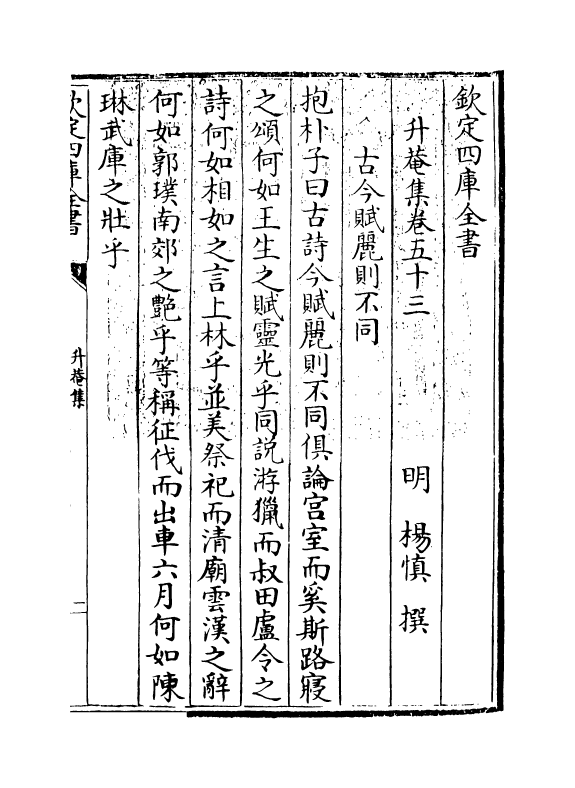 欽定四庫全書
升菴集卷五十三
明 楊慎 撰
古今賦麗則不同
抱朴子曰古詩今賦麗則不同俱論宫室而奚斯路寢
之頌何如王生之賦靈光乎同説游獵而叔田盧令之
詩何如相如之言上林乎並美祭祀而清廟雲漢之辭
何如郭璞南郊之艷乎等稱征伐而出車六月何如陳
琳武庫之壯乎
欽定四庫全書
升菴集